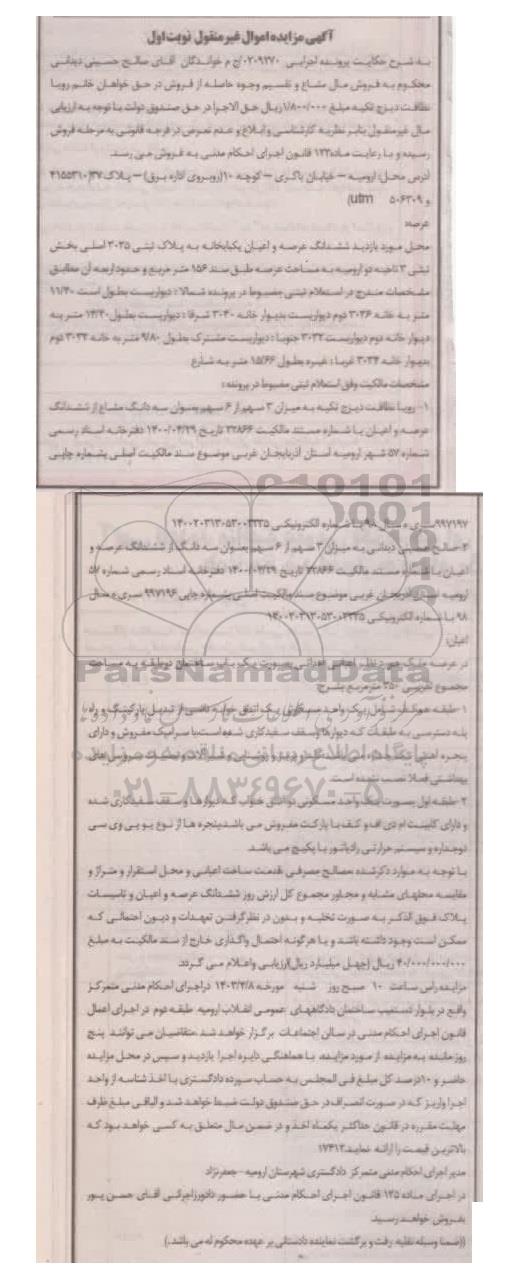 آگهی مزایده اموال غیر منقول نوبت اول
به شرح حکایت پرونده اجرایی ۰۲۰۹۲۷۰/ج م خواندگان آقای صالح حسینی دیدانی
محکوم به فروش مال مشاع و تقسیم وجوه حاصله از فروش در حق خواهان خانم رویا
نظافت دیزج تکیه مبلغ ۱/۸۰۰/۰۰۰ ریال حق الاجرا در حق صندوق دولت با توجه به ارزیابی
مال غیرمنقول بنابر نظریه کارشناسی و ابلاغ و عدم تعرض در فرجه قانونی به مرحله فروش
رسیده و با رعایت ماده ۱۲۲ قانون اجرای احکام مدنی به فروش می رسد.
آدرس محل: ارومیه – خیابان باکری – کوچه ۱۰(روبروی اداره برق) – پلاک ۳۷(۴۱۵۵۳۱۰
و ۵۰۶۳۰۹ utm)
عرصه:
محل مورد بازدید ششدانگ عرصه و اعیان یکبابخانه به پلاک ثبتی ۳۰۳۵ اصلی بخش
ثبتی ۳ ناحیه دو ارومیه به مساحت عرصه طبق سند ۱۵۶ متر مربع و حدود اربعه آن مطابق
مشخصات مندرج در استعلام ثبتی مضبوط در پرونده شمالا: دیواریست بطول است ۱۱/۴۰
متر به خانه ۳۰۳۶ دوم دیواریست بدیوار خانه ۳۰۴۰ شرقا: دیواریست بطول ۱۴/۲۰ متر به
دیوار خانه دوم دیواریست ۳۰۳۲ جنوبا: دیواریست مشترک بطول ۹/۸۰ متر به خانه ۳۰۳۳ دوم
بدیوار خانه ۳۰۳۴ غربا: غیره بطول ۱۵/۶۶ متر به شارع
مشخصات مالکیت وفق استعلام ثبتی مضبوط در پرونده:
۱- رویا نظافت دیزج تکیه به میزان ۳ سهم از ۶ سهم بعنوان سه دانگ مشاع از ششدانگ
عرصه و اعیان با شماره مستند مالکیت ۳۲۸۶۶ تاریخ ۱۴۰۰/۰۴/۲۹ دفترخانه اسناد رسمی
شماره ۵۷ شهر ارومیه استان آذربایجان غربی موضوع سند مالکیت اصلی بشماره چاپی
۹۹۷۱۹۷ سری ه سال ۹۸ با شماره الکترونیکی ۱۴۰۰۲۰۳۱۳۰۵۳۰۰۳۲۳۵
۲- صالح حسینی دیدانی به میزان ۳ سهم از ۶ سهم بعنوان سه دانگ از ششدانگ عرصه و
اعیان با شماره مستند مالکیت ۳۲۸۶۶ تاریخ ۱۴۰۰/۰۴/۲۹ دفترخانه اسناد رسمی شماره ۵۷
ارومیه استان آذربایجان غربی موضوع سند مالکیت اصلی بشماره چاپی ۹۹۷۱۹۶ سری ه سال
۹۸ با شماره الکترونیکی
اعیان:
در عرصه ملک مورد نظر اعیانی احداثی بصورت یک باب ساختمان دوطبقه به مساحت
مجموع تقریبی ۲۵۰ مترمربع بشرح:
۱-طبقه همکف شامل: یک واحد مسکونی یک اتاق خوابه ناشی از تبدیل پارکینگ و راه
پله دسترسی به طبقات که دیوارها و سقف سفیدکاری شده است، با سرامیک مفروش و دارای
پنجره آهنی
بهداشتی فعلا نصب نشده است.
۲-طبقه اول بصورت یک واحد مسکونی دو اتاق خواب که دیوارها و سقف سفیدکاری شده
و دارای کابینت ام دی اف و کف با پارکت مفروش می باشد پنجره ها از نوع یو پی وی سی
دوجداره و سیستم حرارتی رادیاتور با پکیج می باشد.
با توجه به موارد ذکرشده، مصالح مصرفی، قدمت ساخت اعیانی و محل استقرار و متراژ و
مقایسه محلهای مشابه و مجاور مجموع کل ارزش روز ششدانگ عرصه و اعیان و تاسیسات
پلاک فوق الذکر به صورت تخلیه و بدون در نظر گرفتن تعهدات و دیون احتمالی که
ممکن است وجود داشته باشد و یا هرگونه احتمال واگذاری خارج از سند مالکیت به مبلغ
۴۰/۰۰۰/۰۰۰/۰۰۰ ریال (چهل میلیارد ریال) ارزیابی واعلام می گردد.
مزایده راس ساعت ۱۰ صبح روز شنبه مورخه ۱۴۰۳/۴/۸ دراجرای احکام مدنی متمرکز
واقع در بلوار دستغیب ساختمان دادگاههای عمومی انقلاب ارومیه طبقه دوم در اجرای اعمال
قانون اجرای احکام مدنی در سالن اجتماعات برگزار خواهد شد. متقاضیان می توانند پنج
روز مانده به مزایده از مورد مزایده، با هماهنگی دایره اجرا بازدید و سپس در محل مزایده
حاضر و ۱۰درصد کل مبلغ فی المجلس به حساب سپرده دادگستری با اخذ شناسه از واحد
اجرا واریز که در صورت انصراف در حق صندوق دولت ضبط خواهد شد و الباقی مبلغ ظرف
مهلت مقرره در قانون حداکثر یکماه اخذ و در ضمن مال متعلق به کسی خواهد بود که
بالاترین قیمت را ارائه نماید. ۱۷۴۱۲
مدیر اجرای احکام مدنی متمرکز دادگستری شهرستان ارومیه - جعفرنژاد
در اجرای ماده ۱۲۵ قانون اجرای احکام مدنی با حضور دادورز اجرائی آقای حسن پور
بفروش خواهد رسید.
((ضمنا وسیله نقلیه رفت و برگشت نماینده دادستانی بر عهده محکوم له می باشد.)
ParsNamadData
پایگاه اطلاع رسانی مناقصه و مزایده
۰۲۱-۸۸۳۴۹۶۷۰-۵